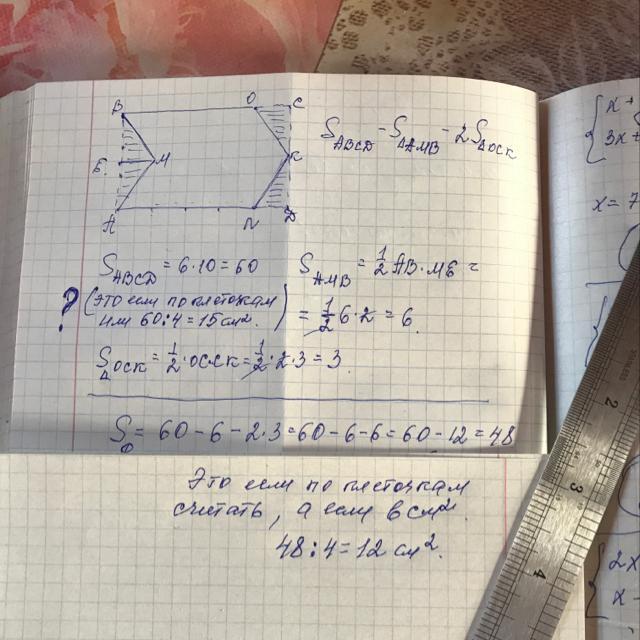 В О С
Е М К
А N D
S_ABCD - S_ΔAMB - 2S_ΔOCK
S_ABCD = 6·10 = 60
? (это если по клеточкам
или 60:4=15 см².)
S_AMB = 1/2 AB·ME =
= 1/2 6·2 = 6
S_ΔOCK = 1/2·OC·CK = 1/2·2·3 = 3
S_Ф = 60-6-2·3=60-6-6=60-12=48
Это если по клеточкам
считать, а если в см².
48:4=12 см².
x +
3x +
x = 7
2x
x -
2
3
4